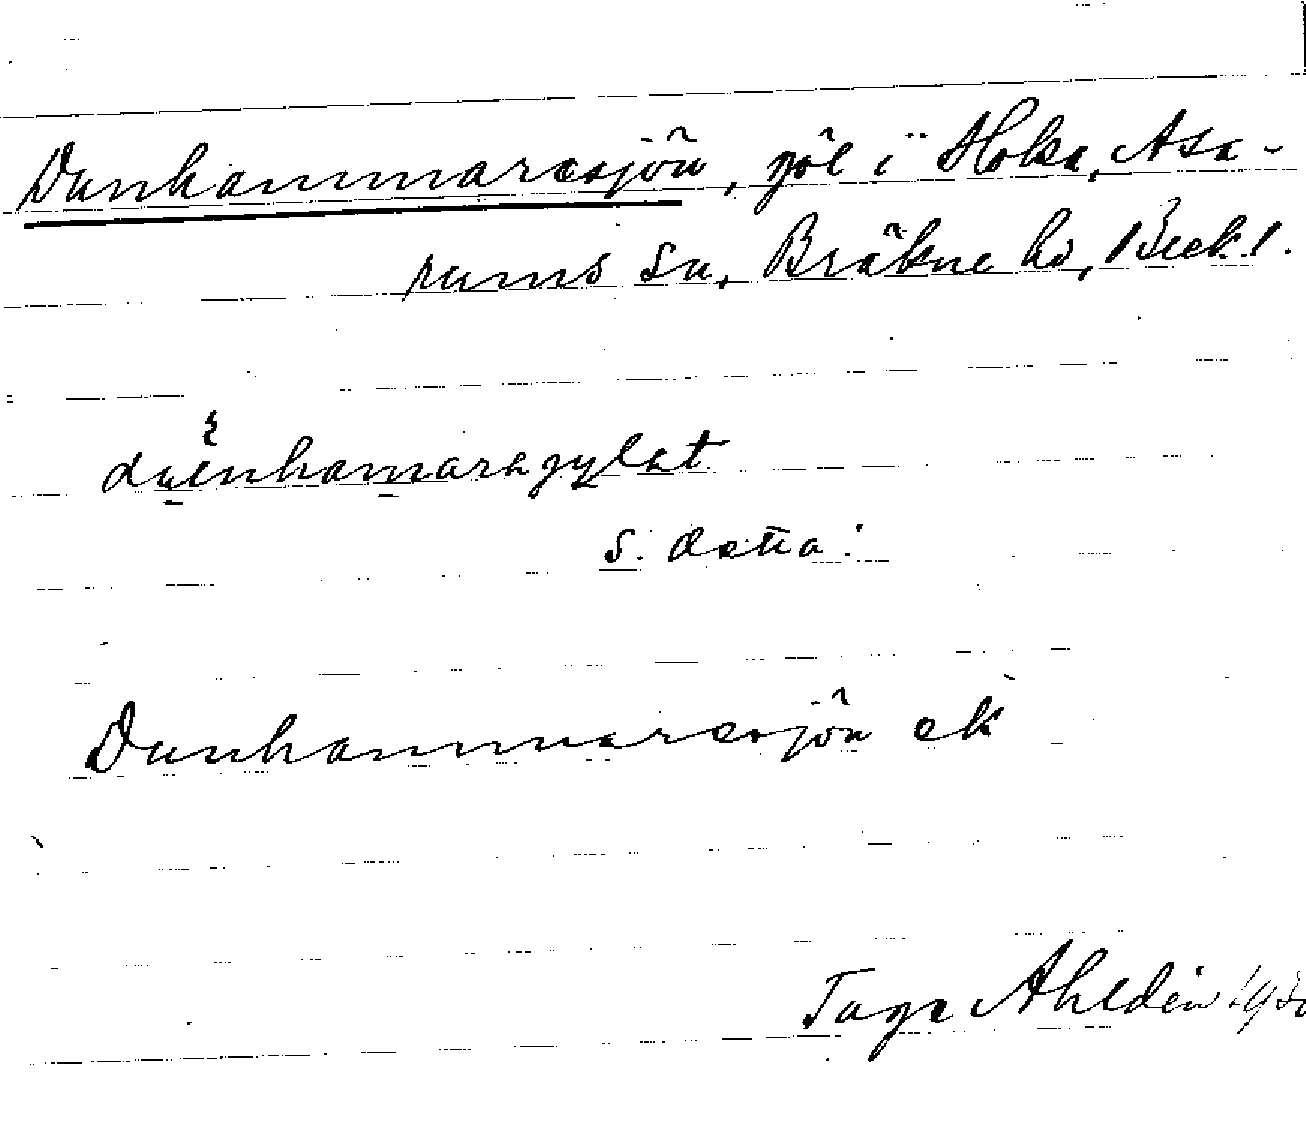 Dunhammaresjön, göl i Hoka, Asa-
rums sn, Bräkne hd, Blek.l.
duenhamaragylat
S. dstia:
Dunhammaresjön ek
Tage Ahldén 19